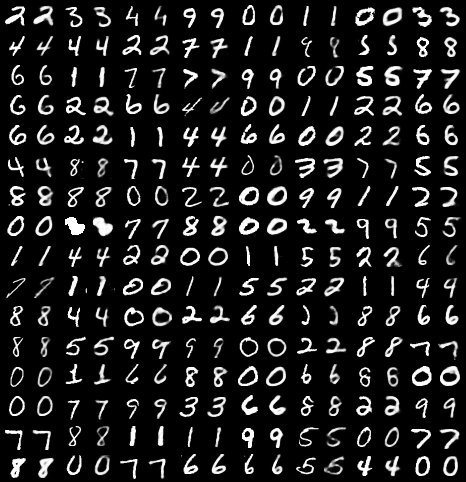 2 2 3 3 4 4 9 9 0 0 1 1 0 0 3 3
4 4 4 4 2 2 7 7 1 1 9 9 5 5 8 8
6 6 1 1 7 7 7 7 9 9 0 0 5 5 7 7
6 6 2 2 6 6 4 4 0 0 1 1 2 2 6 6
6 6 2 2 1 1 4 4 6 6 0 0 2 2 6 6
4 4 8 8 7 7 4 4 0 0 3 3 7 7 5 5
8 8 8 8 0 0 2 2 0 0 9 9 1 1 2 2
0 0 7 7 8 8 0 0 2 2 9 9 5 5
1 1 4 4 2 2 0 0 1 1 5 5 2 2 6 6
7 7 1 1 0 0 1 1 5 5 2 2 1 1 4 4
8 8 4 4 0 0 2 2 6 6 8 8 6 6
8 8 5 5 9 9 9 9 0 0 2 2 8 8 7 7
0 0 1 1 6 6 8 8 0 0 6 6 8 8 0 0
0 0 7 7 9 9 3 3 6 6 8 8 2 2 9 9
7 7 8 8 1 1 1 1 9 9 5 5 0 0 7 7
8 8 0 0 7 7 6 6 6 6 5 5 4 4 0 0